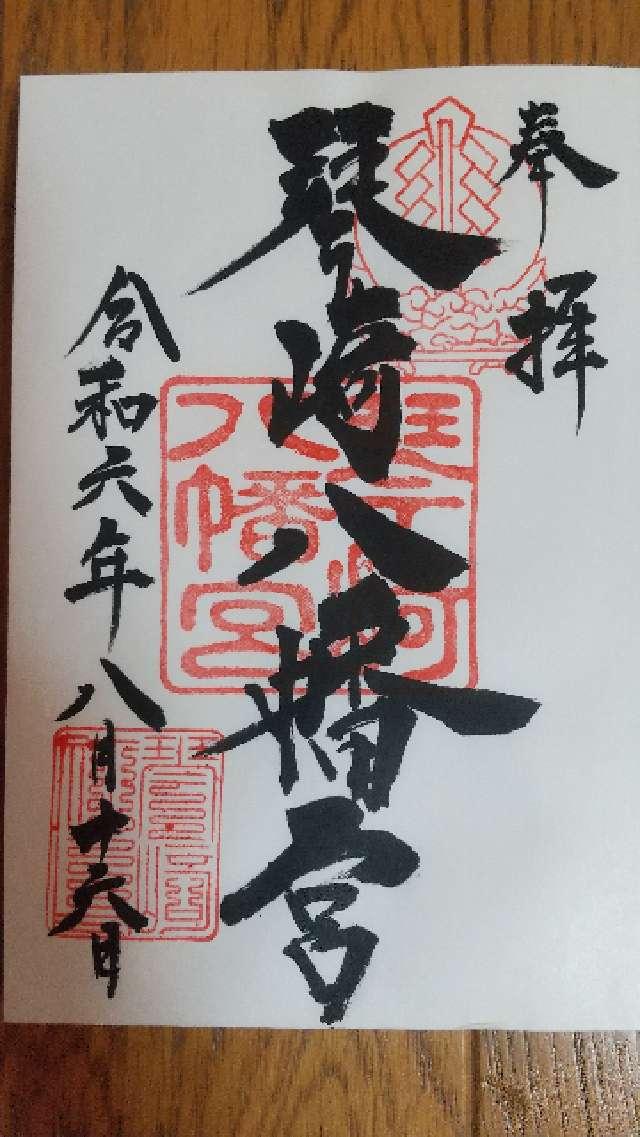 奉拝
琴崎八幡宮
八幡宮
令和六年八月十六日